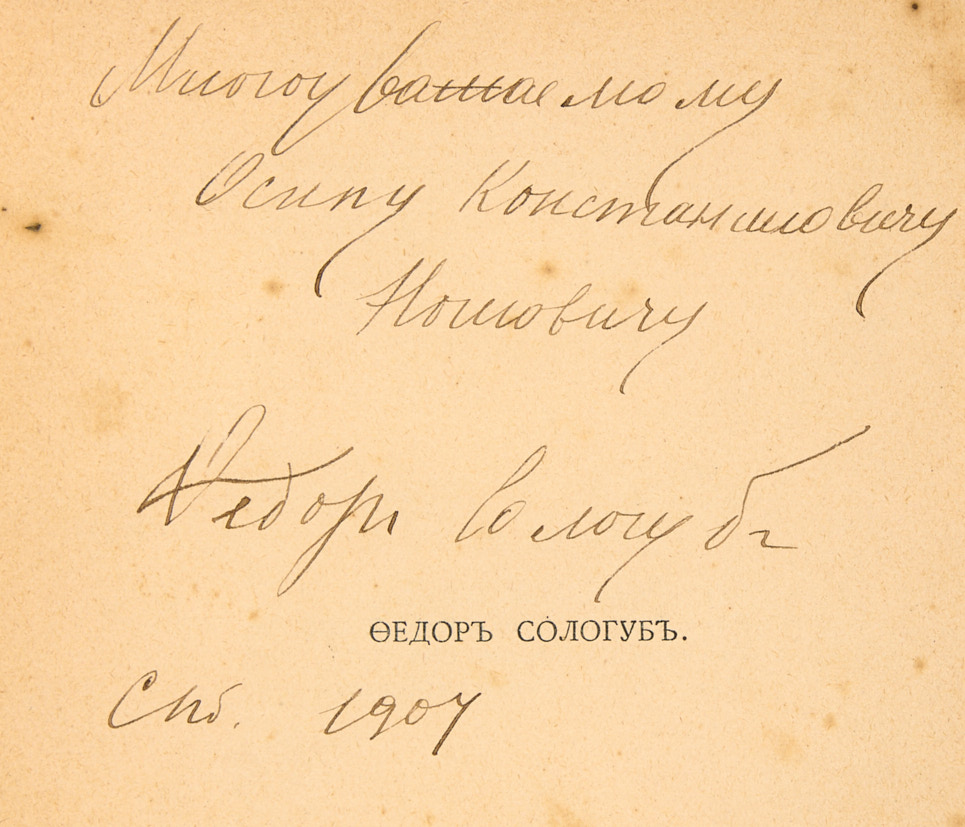 Многоуважаемому
Осипу Константиновичу
Нотовичу
Ѳедоръ Сологубъ
ѲЕДОРЪ СОЛОГУБЪ.
Спб. 1907